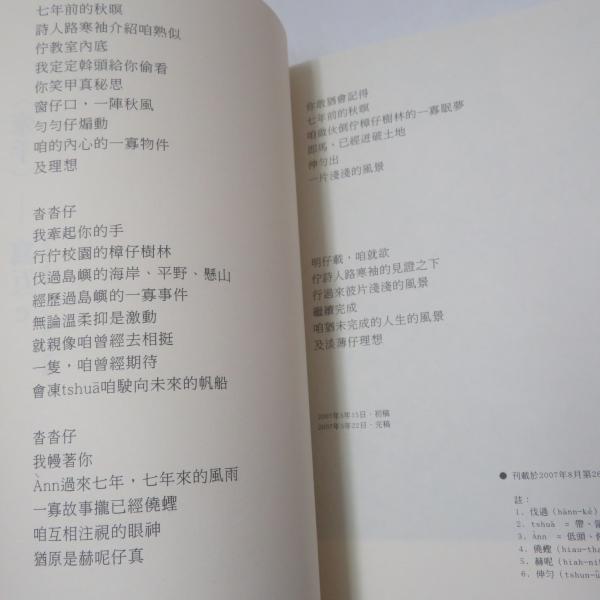 七年前的秋暝
詩人路寒袖介紹咱熟似
佇教室內底
我定定斡頭給你偷看
你笑甲真秘思
窗仔口，一陣秋風
勻勻仔煽動
咱的內心的一寡物件
及理想
沓沓仔
我牽起你的手
行佇校園的樟仔樹林
伐過島嶼的海岸、平野、懸山
經歷過島嶼的一寡事件
無論溫柔抑是激動
就親像咱曾經去相挺
一隻，咱曾經期待
會凍tshuā咱駛向未來的帆船
沓沓仔
我幔著你
Ànn過來七年，七年來的風雨
一寡故事攏已經僥
咱互相注視的眼神
猶原是赫呢仔真
你敢猶會記得
七年前的秋暝
咱做伙倒佇樟仔樹林的一寡眠夢
即馬，已經迸破土地
伸勻出
一片淺淺的風景
明仔載，咱就欲
佇詩人路寒袖的見證之下
行過來彼片淺淺的風景
繼續完成
咱猶未完成的人生的風景
及淡薄仔理想
2007年5月15日．初稿
2007年5月22日．完稿
● 刊載於2007年8月第26
註：
1. 伐過（hānn-ké）
2. tshuā ＝帶、
3. Ànn ＝低頭、
4. 僥（hiau-tha
5. 赫呢（hiah-nih
6. 伸勻（tshun-ûn